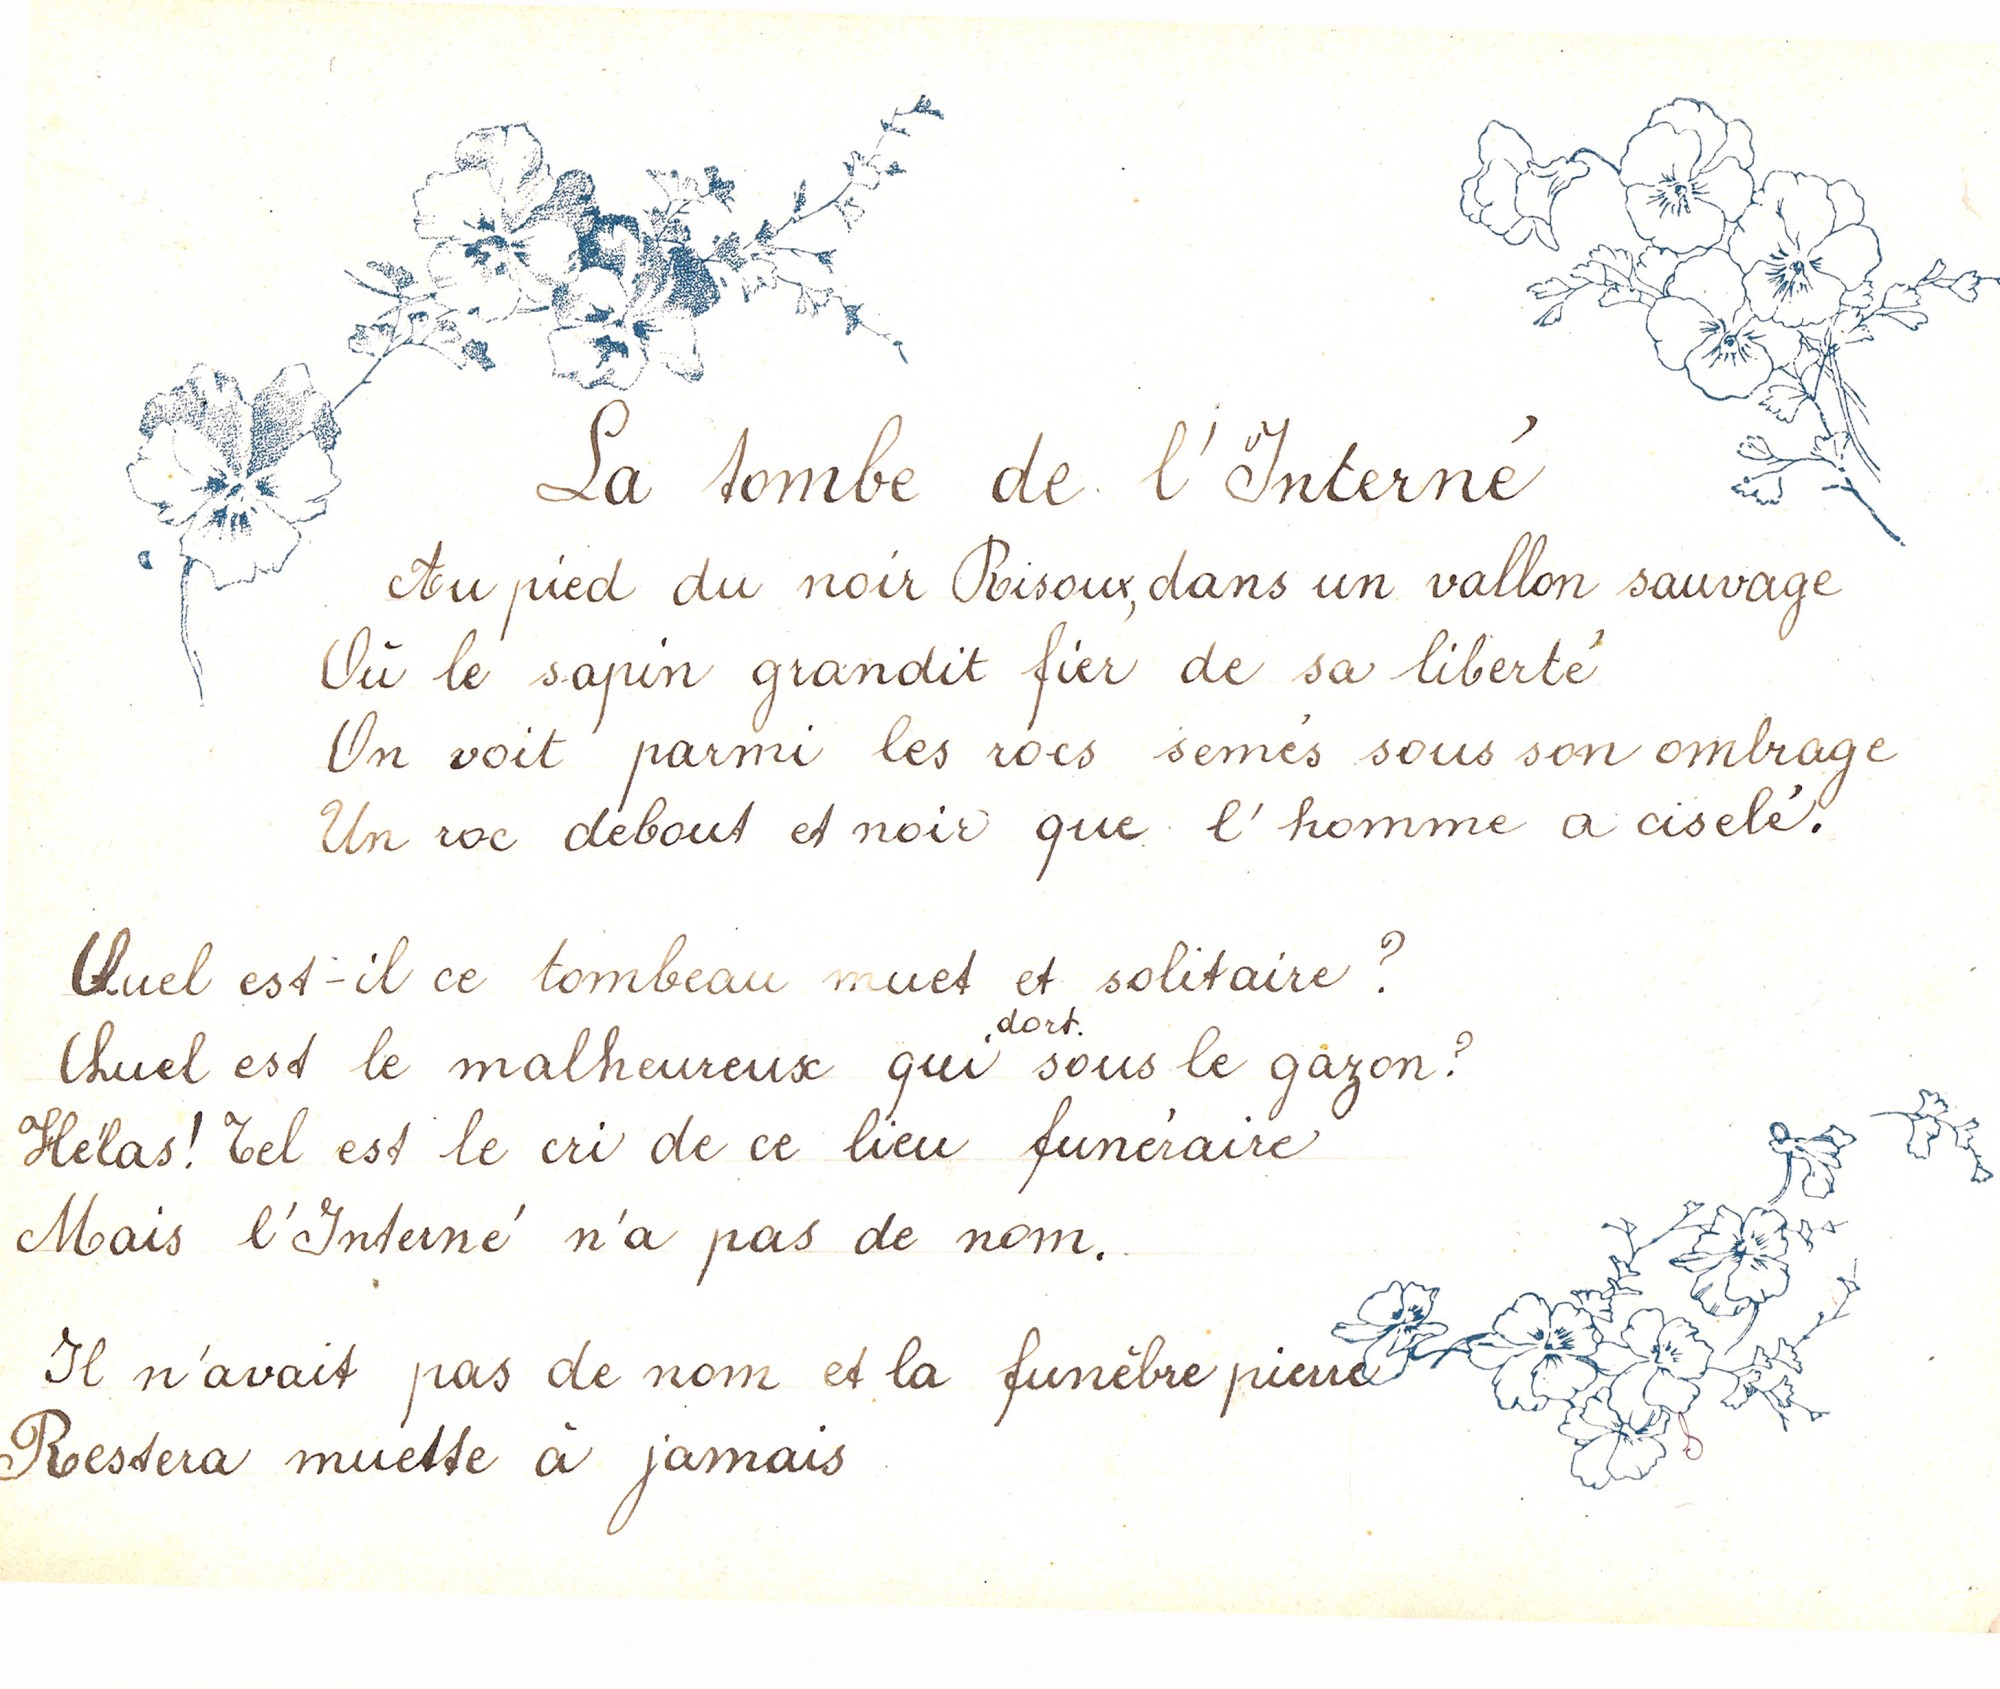 La tombe de l'Interné
Au pied du noir Risoux, dans un vallon sauvage
Où le sapin grandit fier de sa liberté
On voit parmi les rocs semés sous son ombrage
Un roc debout et noir que l'homme a ciselé.
Quel est-il ce tombeau muet et solitaire ?
Quel est le malheureux qui dort sous le gazon ?
Hélas ! Tel est le cri de ce lieu funéraire
Mais l'Interné n'a pas de nom.
Il n'avait pas de nom et la funèbre pierre
Restera muette à jamais